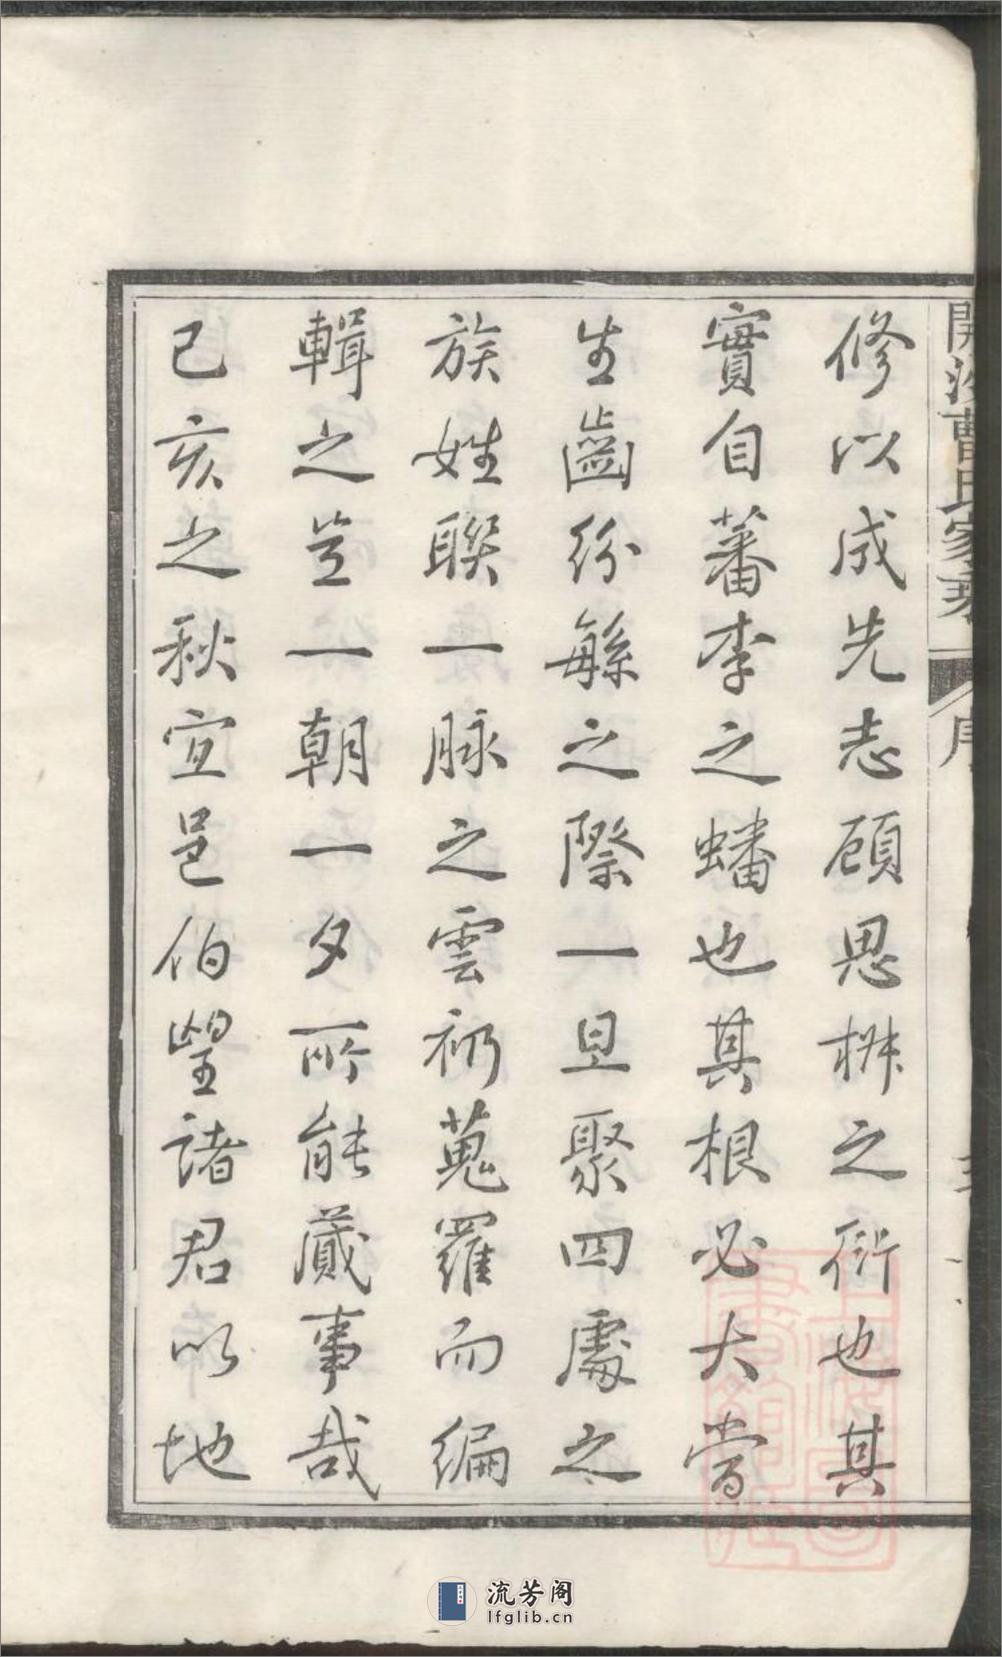 開沙曹氏家乘
序
修以成先志顧思椒之衍也其
實自蕃李之蟠也其根必大當
生齒紛緐之際一旦聚四處之
族姓聯一脉之雲礽蒐羅而編
輯之豈一朝一夕所能蕆事哉
己亥之秋宜邑伯塱諸君以地
流芳阁
lfglib.cn